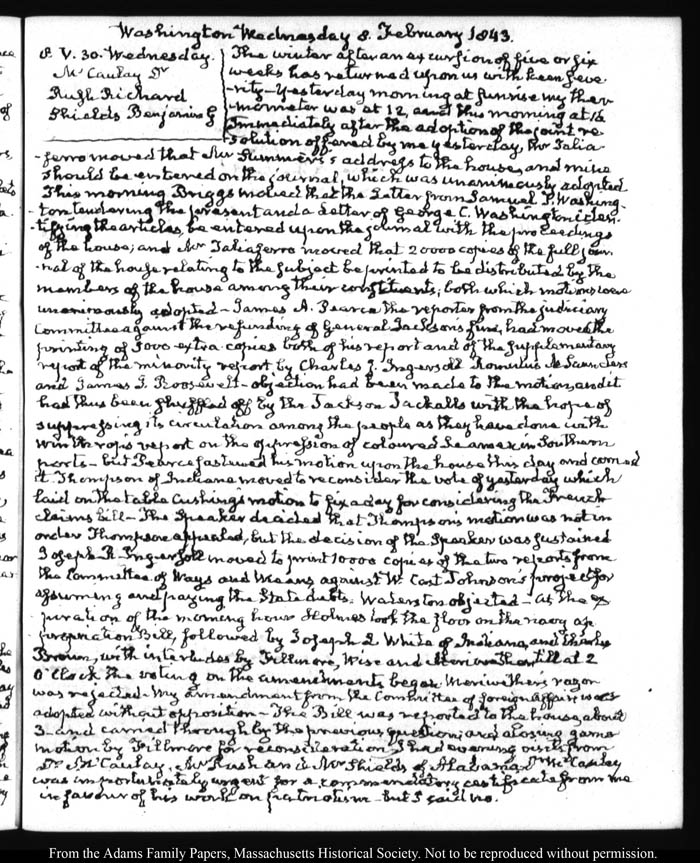 Washington Wednesday 8. February 1843.
8. V. 30. Wednesday.
McCaulay Dr
Rush Richard
Shields Benjamin G
The winter after an excursion of five or six
weeks has returned upon us with keen seve-
-rity—Yesterday morning at sunrise my ther-
-mometer was at 12, and this morning at 16
Immediately after the adoption of the joint re-
-solution offered by me yesterday, Mr Talia-
-ferro moved that Mr Summers's address to the house, and mine
should be entered on the journal, which was unanimously adopted
This morning Briggs moved that the Letter from Samuel T. Washing-
-ton tendering the present and a Letter of George C. Washington iden-
-tifying the articles, be entered upon the journal with the proceedings
of the house; and Mr Taliaferro moved that 20000 copies of the full jour-
-nal of the house relating to the subject be printed to be distributed by the
members of the house among their constituents; both which motions were
unanimously adopted—James A. Pearce the reporter from the judiciary
Committee against the refunding of General Jackson's fine, had moved the
printing of 5000 extra copies both of his report and of the supplementary
report of the minority report by Charles J. Ingersoll Romulus M. Saunders
and James I. Roosevelt—objection had been made to the motion, and it
had thus been shuffled off by the Jackson Jackalls with the hope of
suppressing its circulation among the people as they have done with
Winthrop's report on the oppression of coloured Seamen in Southern
ports—but Pearce fastened his motion upon the house this day and carried
it. Thompson of Indiana moved to reconsider the vote of yesterday which
laid on the table Cushing's motion to fix a day for considering the French
claims bill—The Speaker decided that Thompson's motion was not in
order Thompson appealed, but the decision of the Speaker was sustained
Joseph R. Ingersoll moved to print 10000 copies of the two reports from
the Committee of Ways and Means against W. Cost Johnson's project for
assuming and paying the State debts. Waterston objected—at the ex-
-piration of the morning hour Holmes took the floor on the navy ap-
-propriation Bill, followed by Joseph L White of Indiana, and Charles
Brown, with interludes by Fillmore, Wise and Meriwether, till at 2
O'Clock the voting on the amendments began. Meriwether's razor
was rejected. My amendment from the Committee of foreign Affairs was
adopted without opposition—The Bill was reported to the house, about
3. and carried through by the previous question, and a closing game
motion by Fillmore for reconsideration. I had evening visits from
Dr McCaulay, Mr Rush and Mr Shields of Alabama. Dr McCaulay
was importunately urgent for a commendatory certificate from me
in favour of his work on patriotism—but I said no.
From the Adams Family Papers, Massachusetts Historical Society. Not to be reproduced without permission.